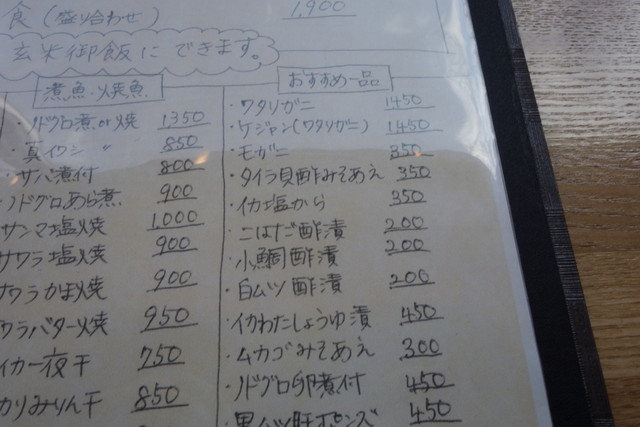 食(盛り合わせ) 1,900
玄米御飯にできます。
煮魚・焼魚
・ノドグロ煮or焼 1350
・真イワシ 〃 850
・サバ煮付 800
ノドグロあら煮 900
サンマ塩焼 1,000
サワラ塩焼 900
サワラかま焼 900
ワラバター焼 950
イカ一夜干 750
みりん干 850
おすすめ一品
・ワタリガニ 1450
・ケジャン(ワタリガニ) 1450
・モガニ 350
・タイラ貝酢みそあえ 350
・イカ塩から 350
・こはだ酢漬 200
・小鯛酢漬 200
・白ムツ酢漬 200
・イカわたしょうゆ漬 450
・ムカゴみそあえ 300
・ノドグロ卵煮付 450
・黒ムツ肝ポンズ 450